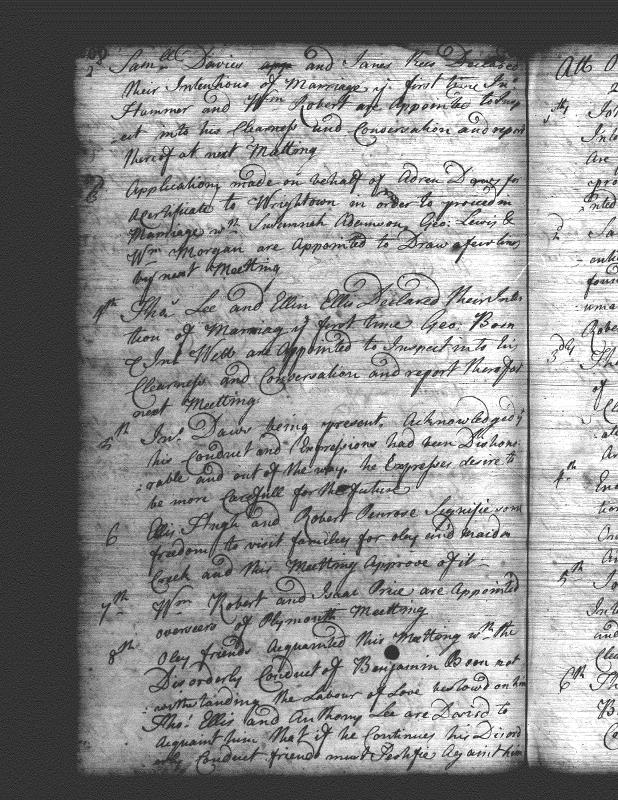 2 Samll Davies and James Rees Declared
their Intentions of Marriage ye first time Jno
Hummer and Wm Robert are Appointed to Insp
:ect into his Clearness and Conversation and report
thereof at next Meeting
Application made on behalf of for
a Certificate to Wrightown in order to proceed in
Marriage wth Susannah Adamson, Geo: Lewis &
Wm Morgan are Appointed to Draw a few lines
by next Meetting
4th Thos Lee and Ellin Ellis Declared their Inten
tion of Marriage ye first time Geo: Boon
& Jno Webb are Appointed to Inspect into his
Clearness and Conversation and report thereof at
next Meetting:
5th Jno: Davis being present, Acknowledged yt
his Conduct and Expressions had been Dishono
:rable and out of the way, he Expresses desire to
be more Carefull for the future
6 Ellis Hugh and Robert Penrose Signifie som
freedom to visit families for oley and maiden
Creek and this Meetting Approve of it
7th Wm Robert and Isaac Price are Appointed
overseers of Plymouth Meetting
8th Oley friends Acquainted this Meetting wth the
Disorderly Conduct of Benjamin Boon not
:withstanding the Labour of Love bestow'd on him
Thos: Ellis and Anthony Lee are Desird to
Acquaint him that if he Continues his Disord
:erly Conduct friends must Testifie Against him
Att
5th
Inte
Are
pro
:nted
2
foun
uma
Rober
3dly
of
4th
tion
5th
Inte
and
Clea
6th